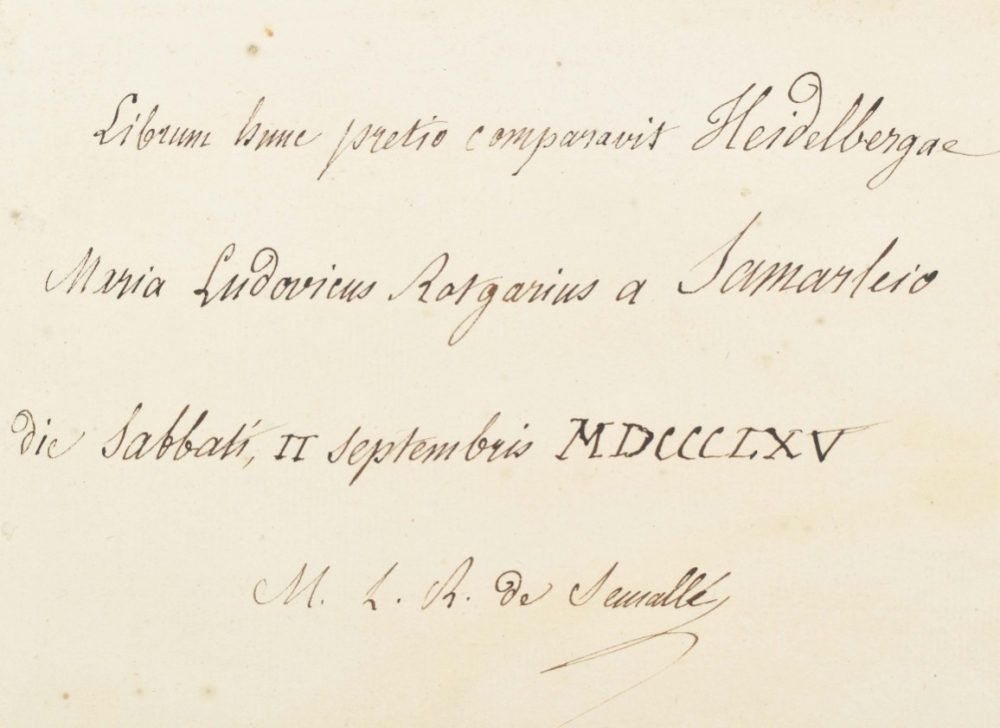 Librum hunc pretio comparavit Heidelbergae
Maria Ludovicus Rotgarius a Samarleio
die Sabbati, II Septembris MDCCCLXV
M. L. R. de Semallé